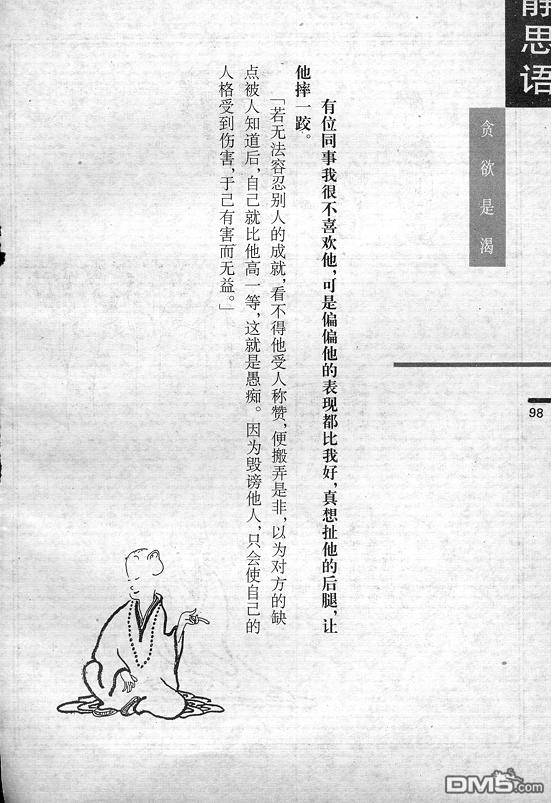 静思语
贪欲是渴
98
有位同事我很不喜欢他，可是偏偏他的表现都比我好，真想扯他的后腿，让
他摔一跤。
「若无法容忍别人的成就，看不得他受人称赞，便搬弄是非，以为对方的缺
点被人知道后，自己就比他高一等，这就是愚痴。因为毁谤他人，只会使自己的
人格受到伤害，于己有害而无益。」
DM5.com